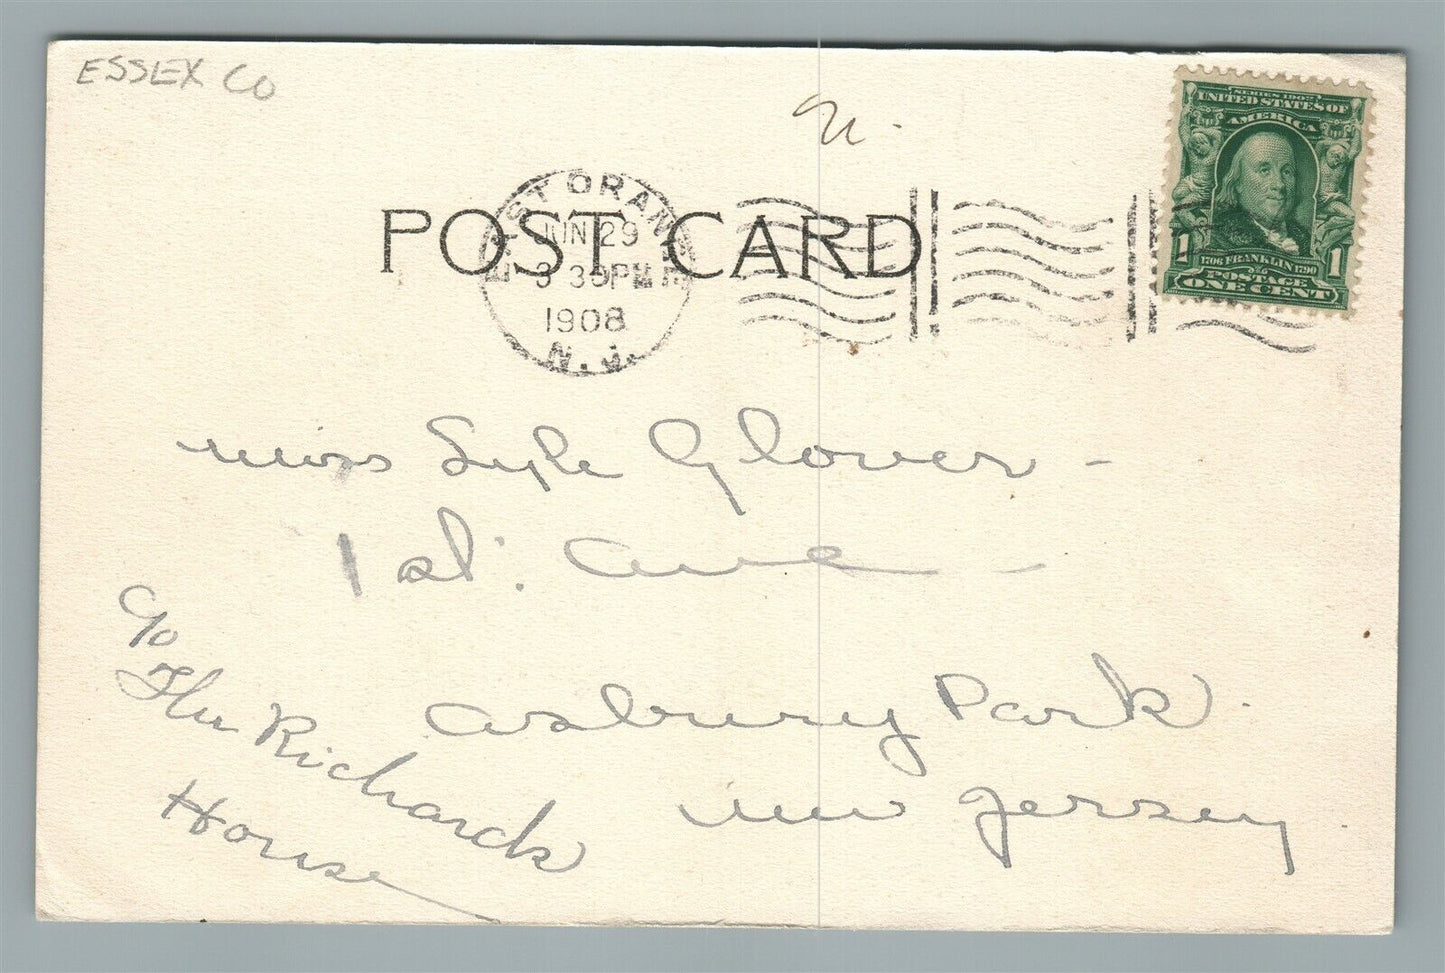 ESSEX CO
SERIES 1902
UNITED STATES OF
AMERICA
1 1706 FRANKLIN 1790 1
POSTAGE
ONE CENT
POST CARD
EAST ORANGE
JUN 29
3 30 PM
1908
N. J.
Miss Lyle Glover -
1st. Ave -
Asbury Park.
New Jersey
c/o
The Richards
House